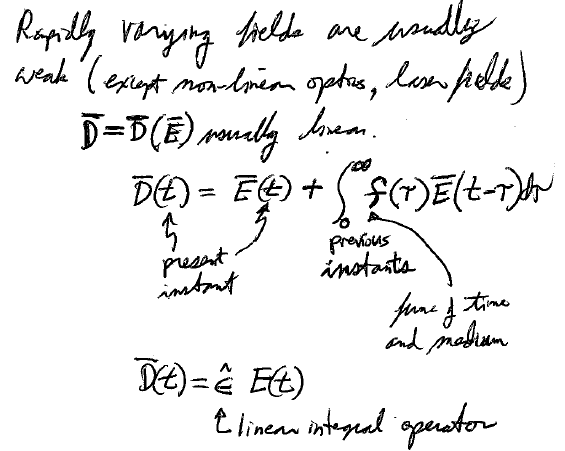 Rapidly varying fields are usually
weak (except non-linear optics, laser fields)
D̅ = D̅(E̅) usually linear.
D̅(t) = E̅(t) + ∫₀^∞ f(τ) E̅(t-τ)dτ
present instant
previous instants
func of time and medium
D̅(t) = ε̂ E(t)
linear integral operator